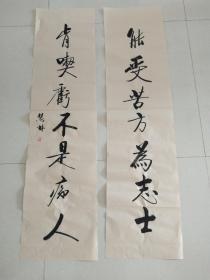 能受苦方為志士
肯喫虧不是痴人